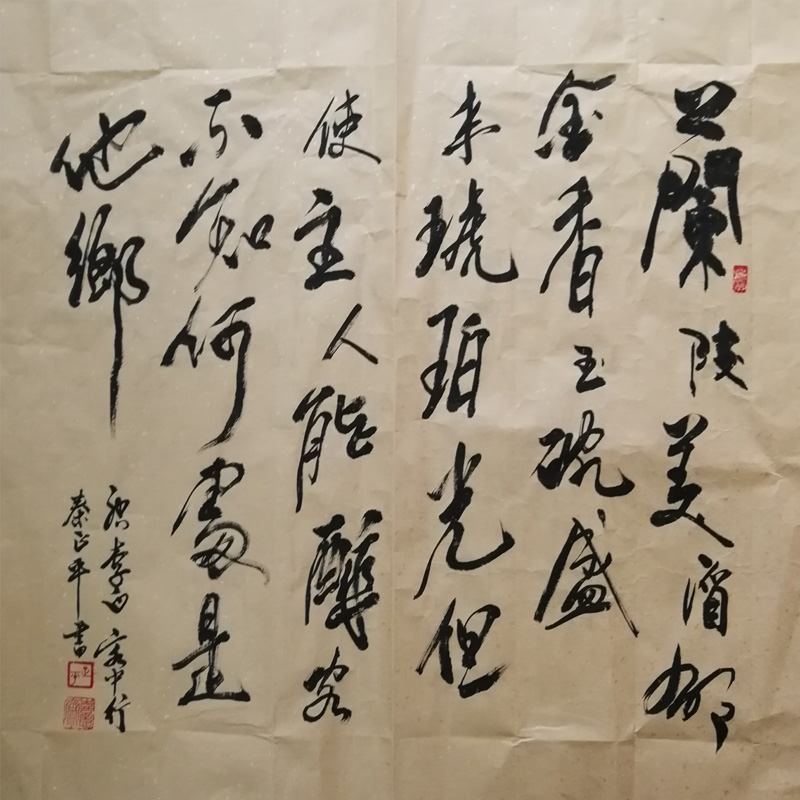 蘭陵美酒郁
金香玉碗盛
来琥珀光但
使主人能醉客
不知何處是
他鄉
唐李白客中行
秦正平書